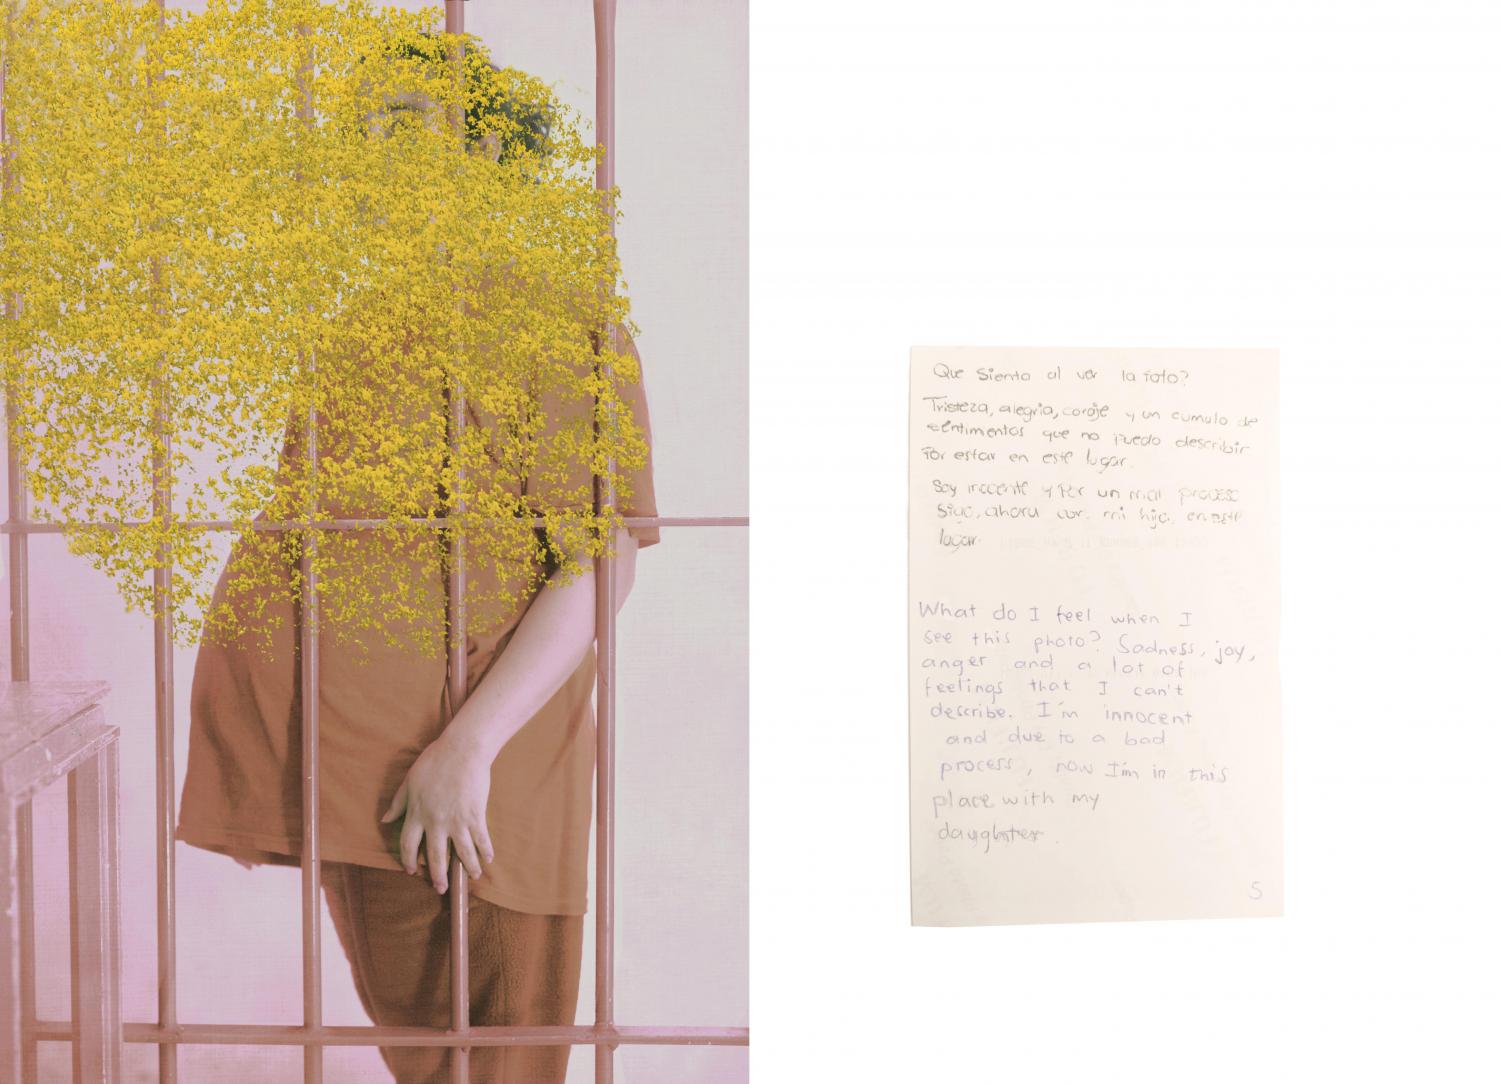 Que siento al ver la foto?
Tristeza, alegria, coraje y un cumulo de
sentimentos que no Puedo describir
Por estar en este lugar.
Soy inocente y Por un mal proceso
Sigo, ahora con mi hija en este
lugar.
What do I feel when I
see this photo? Sadness, joy,
anger and a lot of
feelings that I can't
describe. I'm innocent
and due to a bad
process, now I'm in this
place with my
daughter.
5